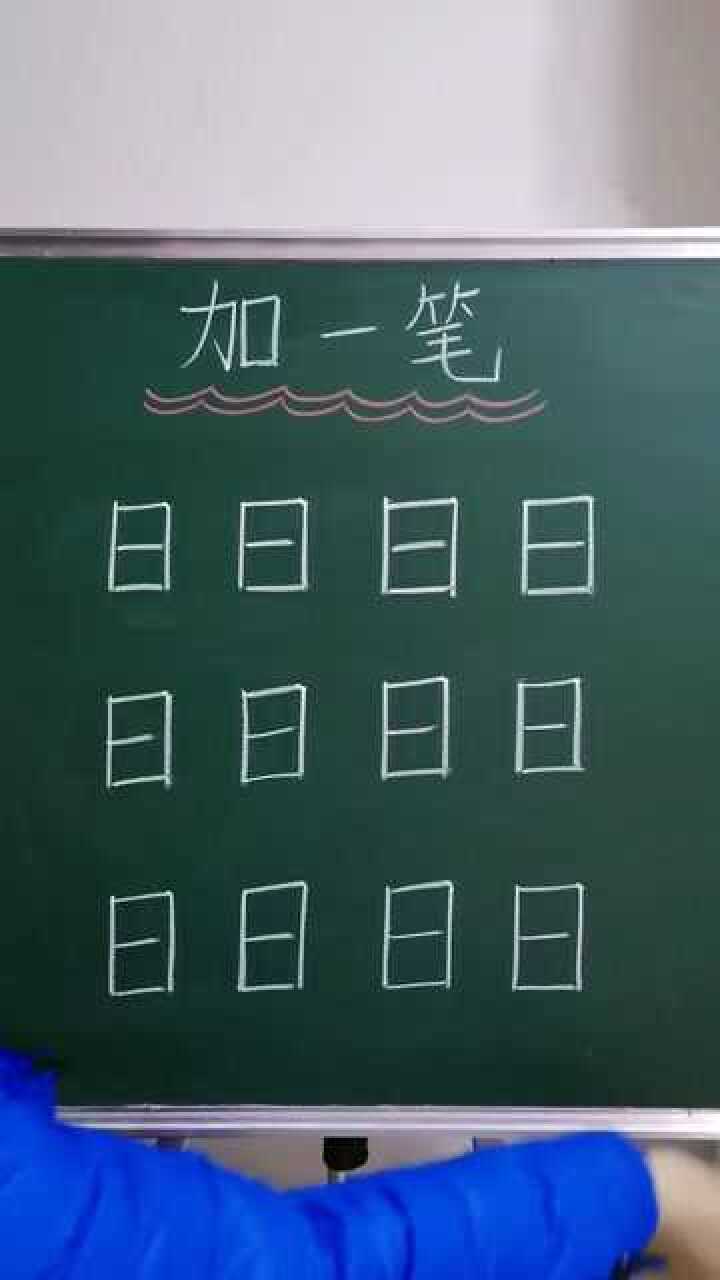 加一笔
日 日 日 日
日 日 日 日
日 日 日 日